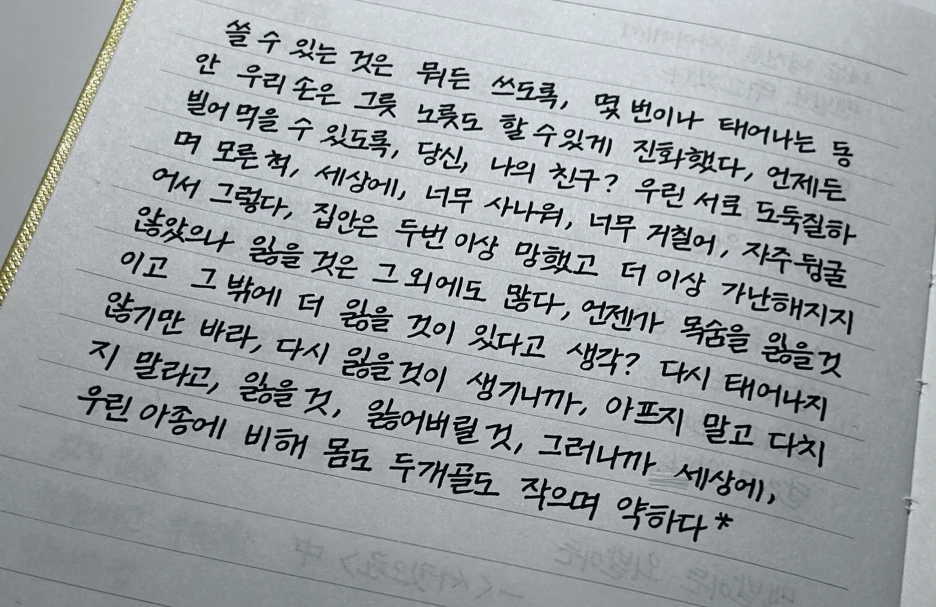 쓸 수 있는 것은 뭐든 쓰도록, 몇 번이나 태어나는 동
안 우리 손은 그릇 노릇도 할 수 있게 진화했다, 언제든
빌어 먹을 수 있도록, 당신, 나의 친구? 우린 서로 도둑질하
며 모른 척, 세상에, 너무 사나워, 너무 거칠어, 자주 뒹굴
어서 그렇다, 집안은 두번 이상 망했고 더 이상 가난해지지
않았으나 잃을 것은 그 외에도 많다, 언젠가 목숨을 잃을 것
이고 그 밖에 더 잃을 것이 있다고 생각? 다시 태어나지
않기만 바라, 다시 잃을 것이 생기니까, 아프지 말고 다치
지 말라고, 잃을 것, 잃어버릴 것, 그러니까 세상에,
우린 아종에 비해 몸도 두개골도 작으며 약하다*